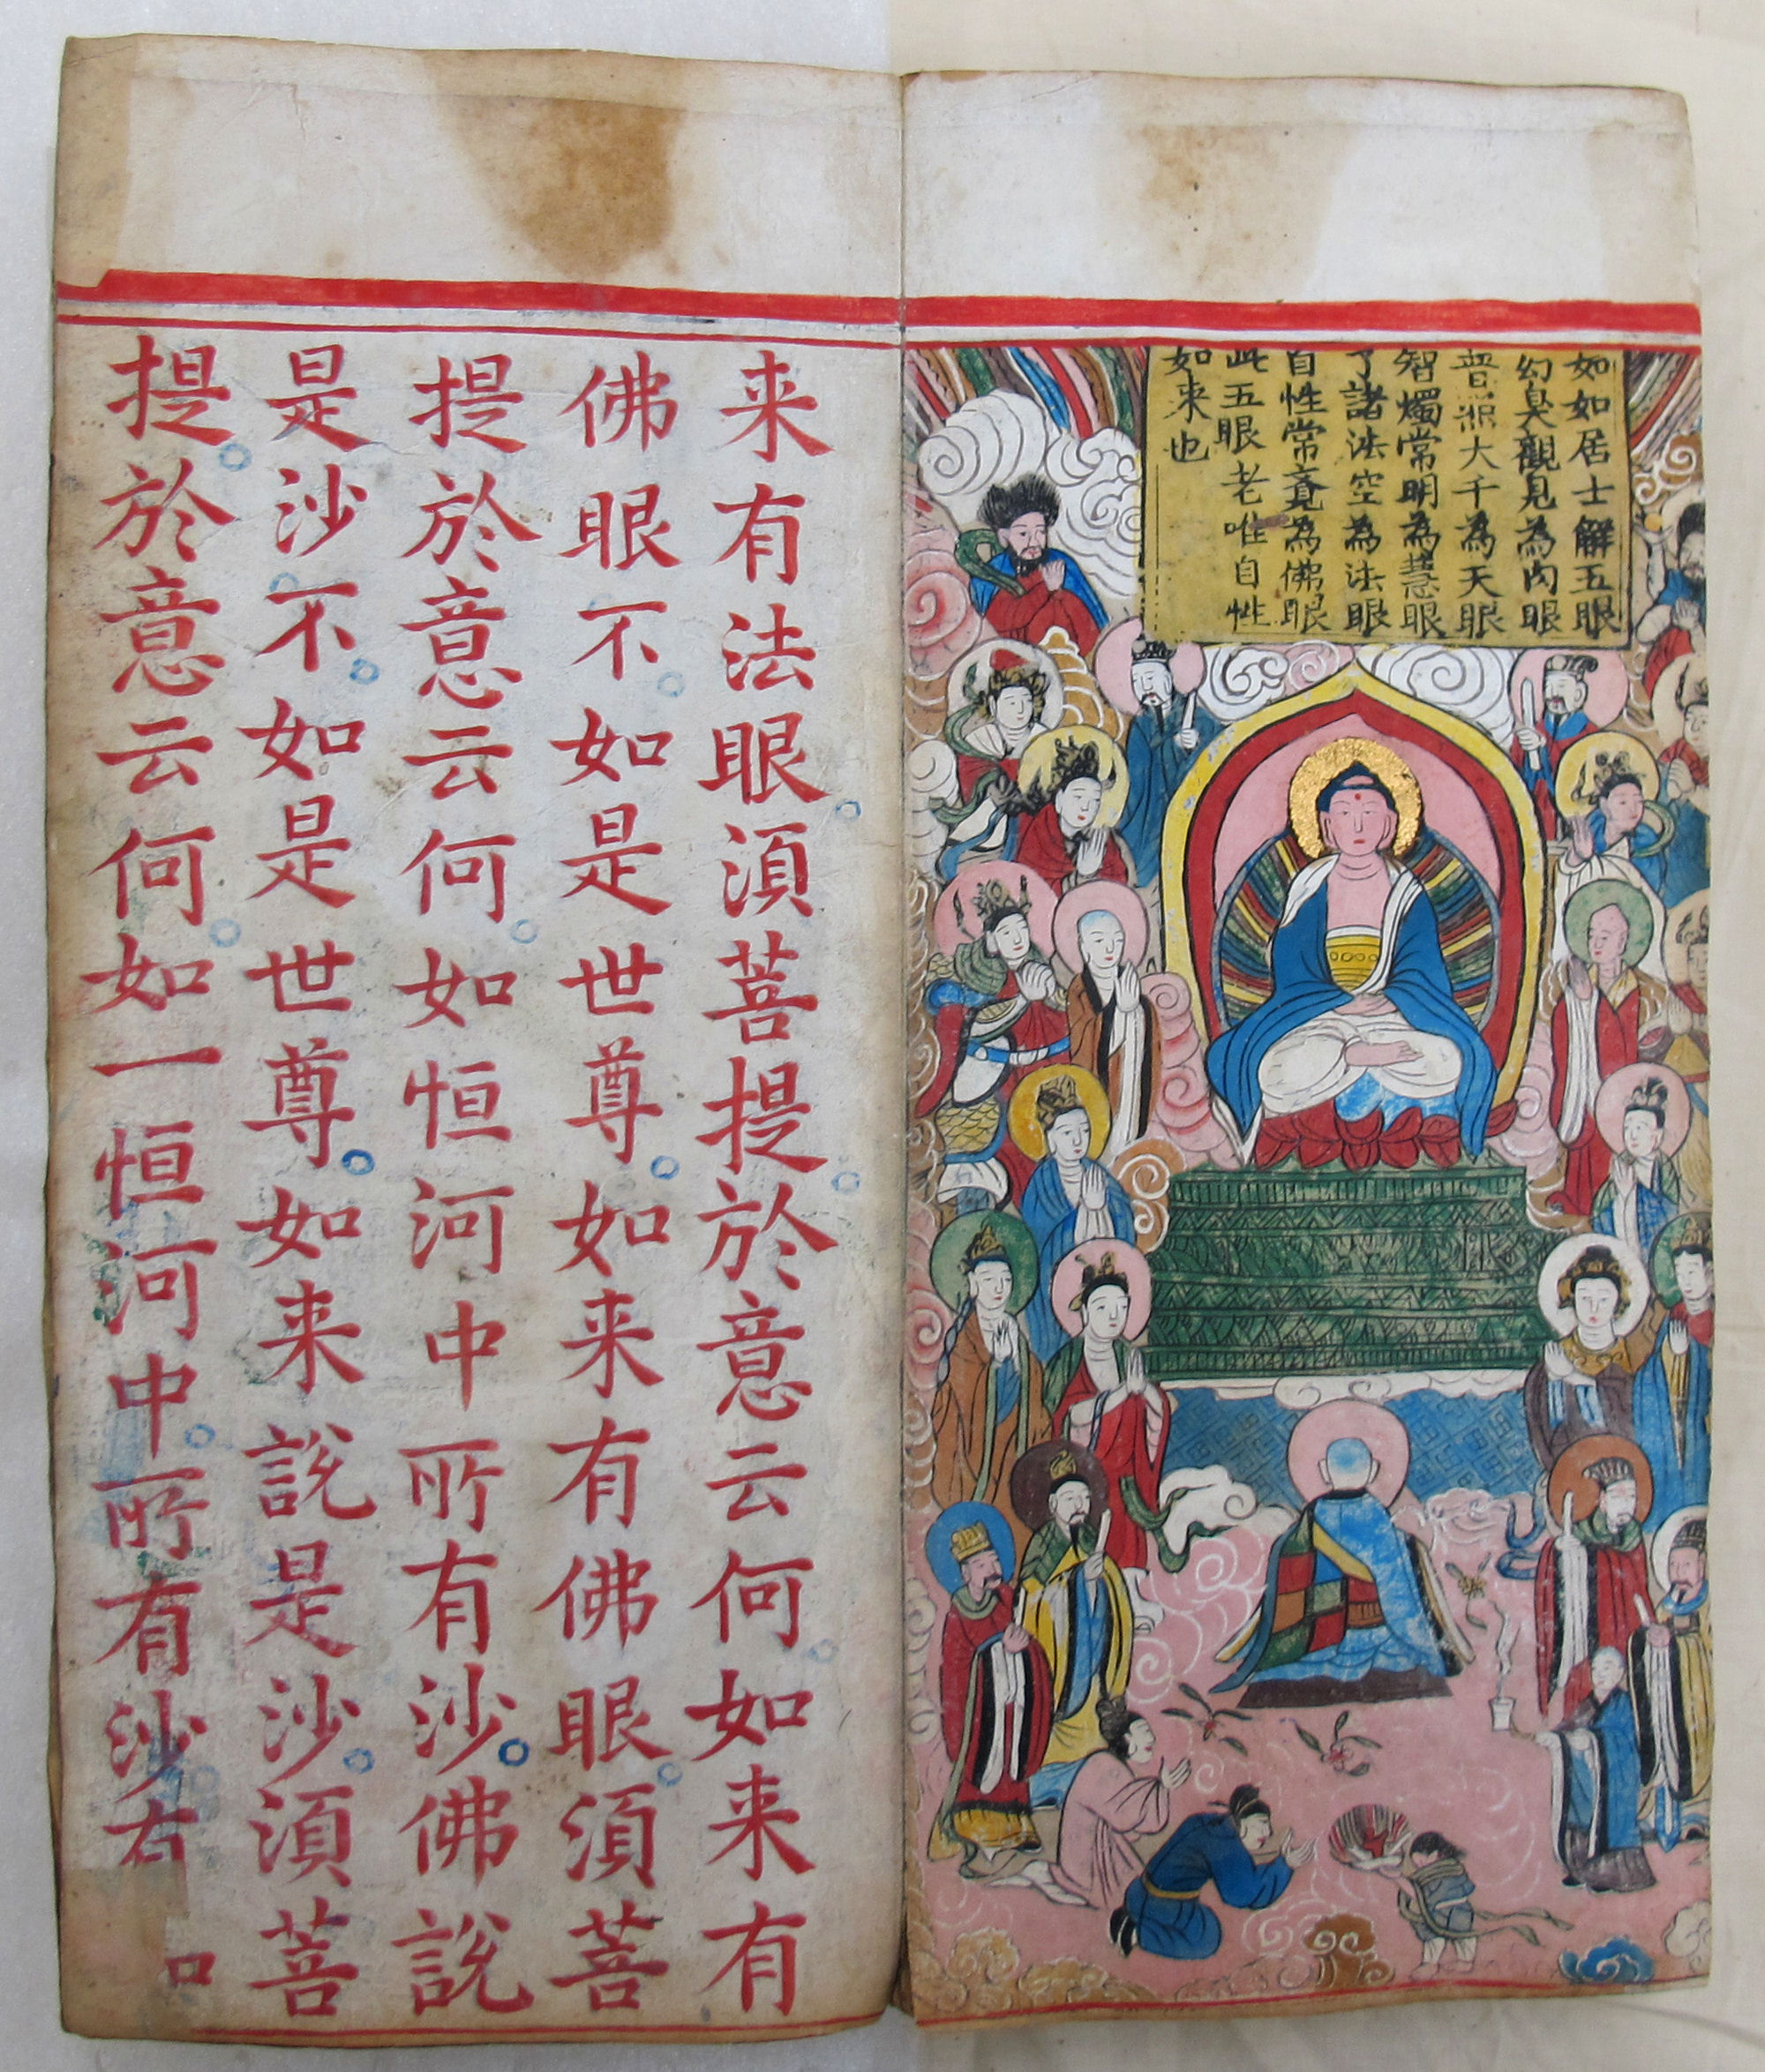 如如居士解五眼
幻臭觀見為肉眼
普照大千為天眼
智燭常明為慧眼
了諸法空為法眼
自性常覺為佛眼
此五眼老唯自性
如来也
来有法眼。湏菩提。於意云何。如来有
佛眼不。如是世尊。如来有佛眼。湏菩
提於意云何。如恒河中所有沙。佛說
是沙。不。如是世尊。如来說是沙。湏菩
提。於意云何。如一恒河中。所有沙。有